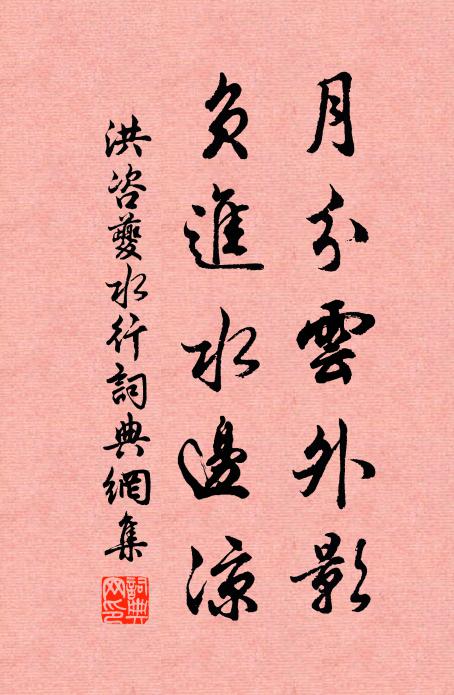 月分雲外影
風進水邊涼
洪咨夔水行詞典網集
詞典
网印